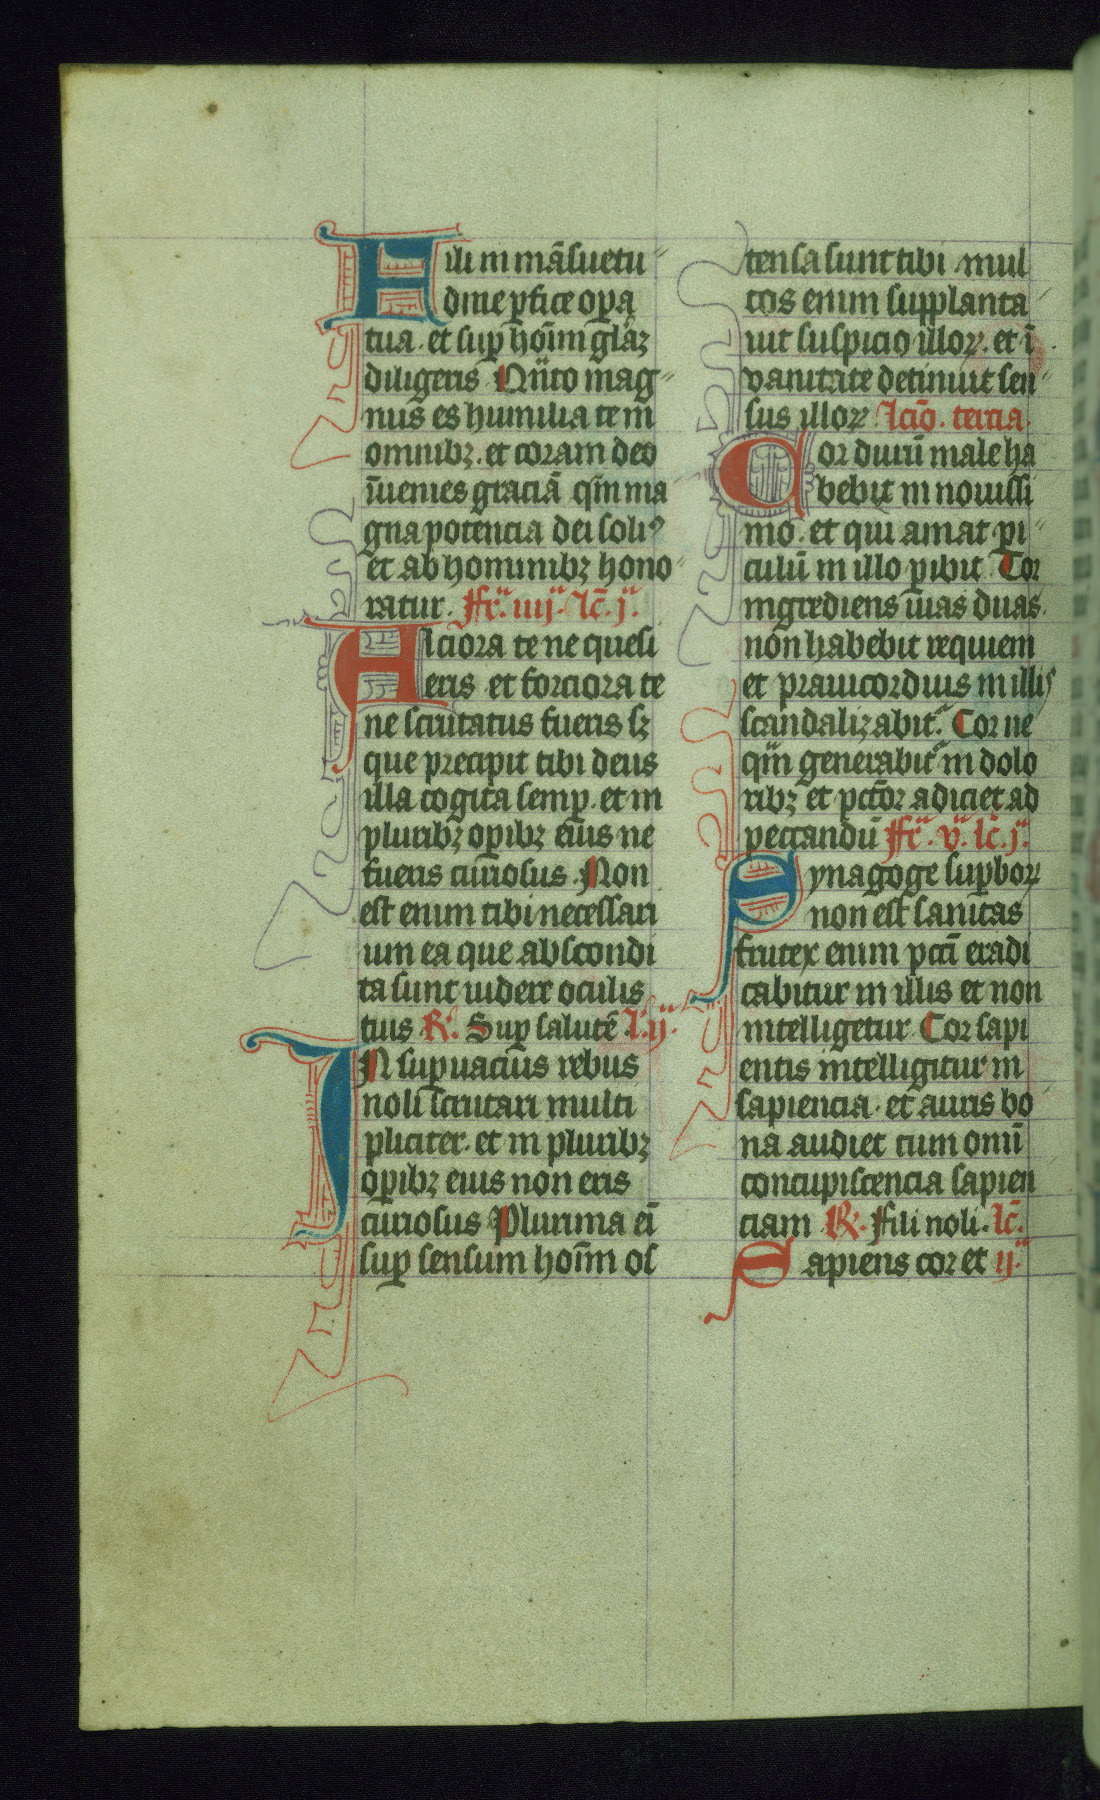 Fili in mãsuetu
dine ꝑfice oꝑa
tua. et suꝑ hoīm gl̃az
diligeris Nũto mag
nus es humilia te in
omnibꝫ. et coram deo
īuenies graciã qm̃ ma
gna potencia dei soliꝰ
et ab hominibꝫ hono
ratur. Fr̃. iiij. lc̃. j.
Alciora te ne quesi
eris et forciora te
ne scrutatus fueris sꝫ
que precipit tibi deus
illa cogita semꝑ. et in
pluribꝫ oꝑibꝫ eius ne
fueris curiosus. Non
est enim tibi necessari
um ea que abscondi
ta sunt uidere oculis
tuis R̃. Suꝑ salutẽ l. ij.
IN suꝑuacuis rebus
noli scrutari multi
pliciter. et in pluribꝫ
oꝑibꝫ eius non eris
curiosus Plurima ei̅
suꝑ sensum hoīm os
tensa sunt tibi mul
tos enim supplanta
uit suspicio illoꝝ. et ī
vanitate detinuit sen
sus illoꝝ lcĩo. tercia.
Cor durũ male ha
bebit in nouissi
mo. et qui amat pi
culũ in illo ꝑibit Cor
ingrediens uias duas.
non habebit requiem
et prauicordius in illis
scandalizabit̃. Cor ne
qm̃ generabit̃ in dolo
ribꝫ et pcc̃or adiciet ad
peccandũ Fr̃. v. lc̃. j.
Synagoge suꝑboꝝ
non est sanitas
frutex enim pcc̃i eradi
cabitur in illis et non
intelligetur Cor sapi
entis intelligitur in
sapiencia. et auris bo
na audiet cum omĩ
concupiscencia sapien
ciam R̃. Fili noli. lc̃.
Sapiens cor et ij.